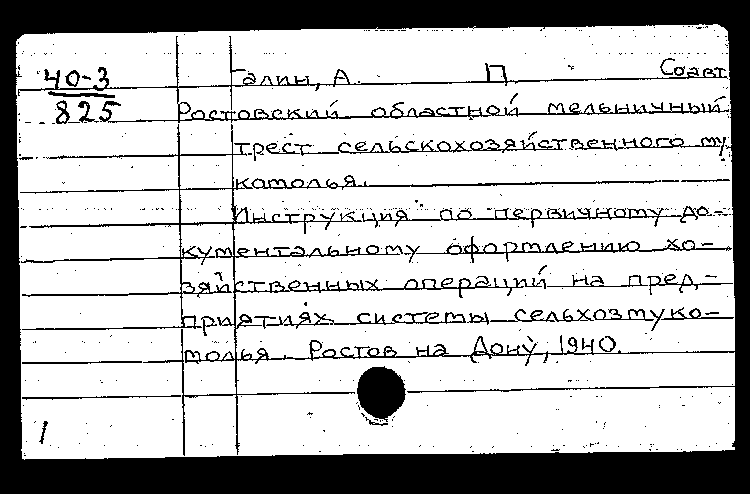 40-3
825
Галин, А. П Соавт
Ростовский областной мельничный
трест сельскохозяйственного му
комолья.
Инструкция по первичному до-
кументальному оформлению хо-
зяйственных операций на пред-
приятиях системы сельхозмуко-
молья. Ростов на Дону, 1940.
1